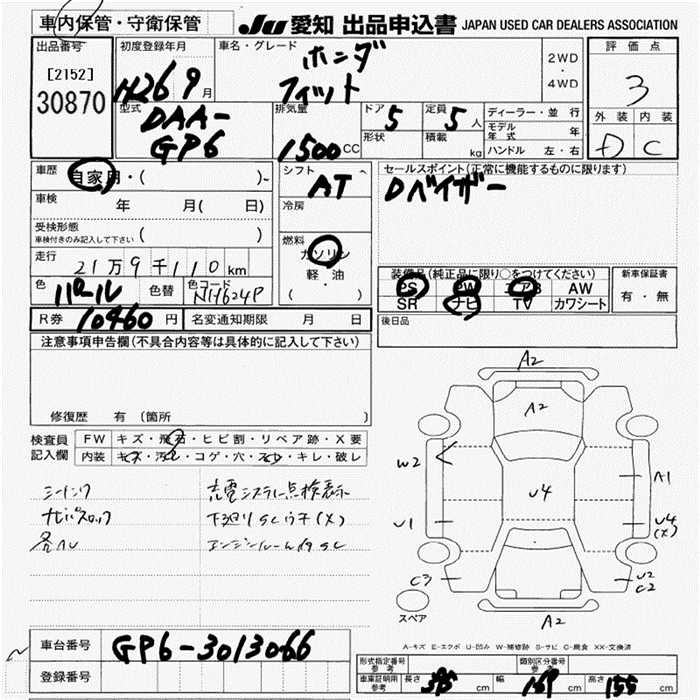 車内保管・守衛保管
JU 愛知 出品申込書 JAPAN USED CAR DEALERS ASSOCIATION
出品番号
[2152]
30870
初度登録年月
H26 9月
車名・グレード
ホンダ
フィット
2WD
・
4WD
評価点
3
外装 内装
D C
型式
DAA-
GP6
排気量
1500 CC
ドア 5
定員 5 人
形状
積載 kg
ディーラー・並行
モデル年式 年
ハンドル 左・右
車歴
自家用・( )
車検 年 月( 日)
受検形態
車検付きのみ記入して下さい ( )
走行
21万9千110km
色 パール 色替 色コード NH624P
シフト
AT
冷房
燃料
ガソリン
軽・油
( )
セールスポイント(正常に機能するものに限ります)
Dバイザー
装備品(純正品に限り○をつけてください)
PS PW エアB AW
SR ナビ TV カワシート
新車保証書
有・無
後日品
R券 10460円 名変通知期限 月 日
注意事項申告欄(不具合内容等は具体的に記入して下さい)
修復歴 有(箇所 )
検査員
記入欄
FW キズ・飛石・ヒビ割・リペア跡・X要
内装 キズ・汚レ・コゲ・穴・ネジ・キレ・破レ
シーリング 充電システム点検表示
ナビパスロック 下廻りSCウ予(X)
各ヘレ エンジンルーム内SC
A2
A2
W2
A1
U4
U1
U4
(X)
C3
U2
C2
A2
スペア
A-キズ E-エクボ U-凹み W-補修跡 S-サビ C-腐食 XX-交換済
車台番号 GP6-3013066
登録番号
形式指定番号
参考
類別区分番号
参考
車庫証明用
参考
長さ 395 cm 幅 169 cm 高さ 155 cm